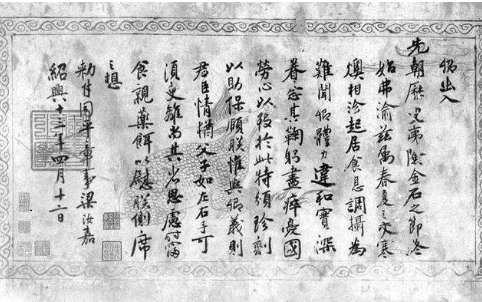 卿出入
先朝歷夷險金石之節終
始弗渝茲屬春夏之交寒
燠相沴起居食息調攝為
難聞卿體力違和實深
眷念其鞠躬盡瘁憂國
勞心以積於此特頒珍劑
以助保頤朕惟與卿義則
君臣情猶父子如左右手可
須臾離尚其少思慮時
食親藥餌以慰朕側席
之想
敕付同平章事梁汝嘉
紹興十三年四月十二日